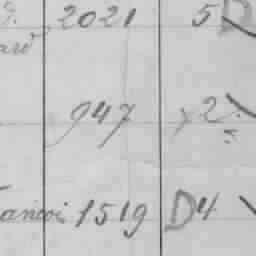 2021 5 D
947 y 2
ancoi 1519 D4